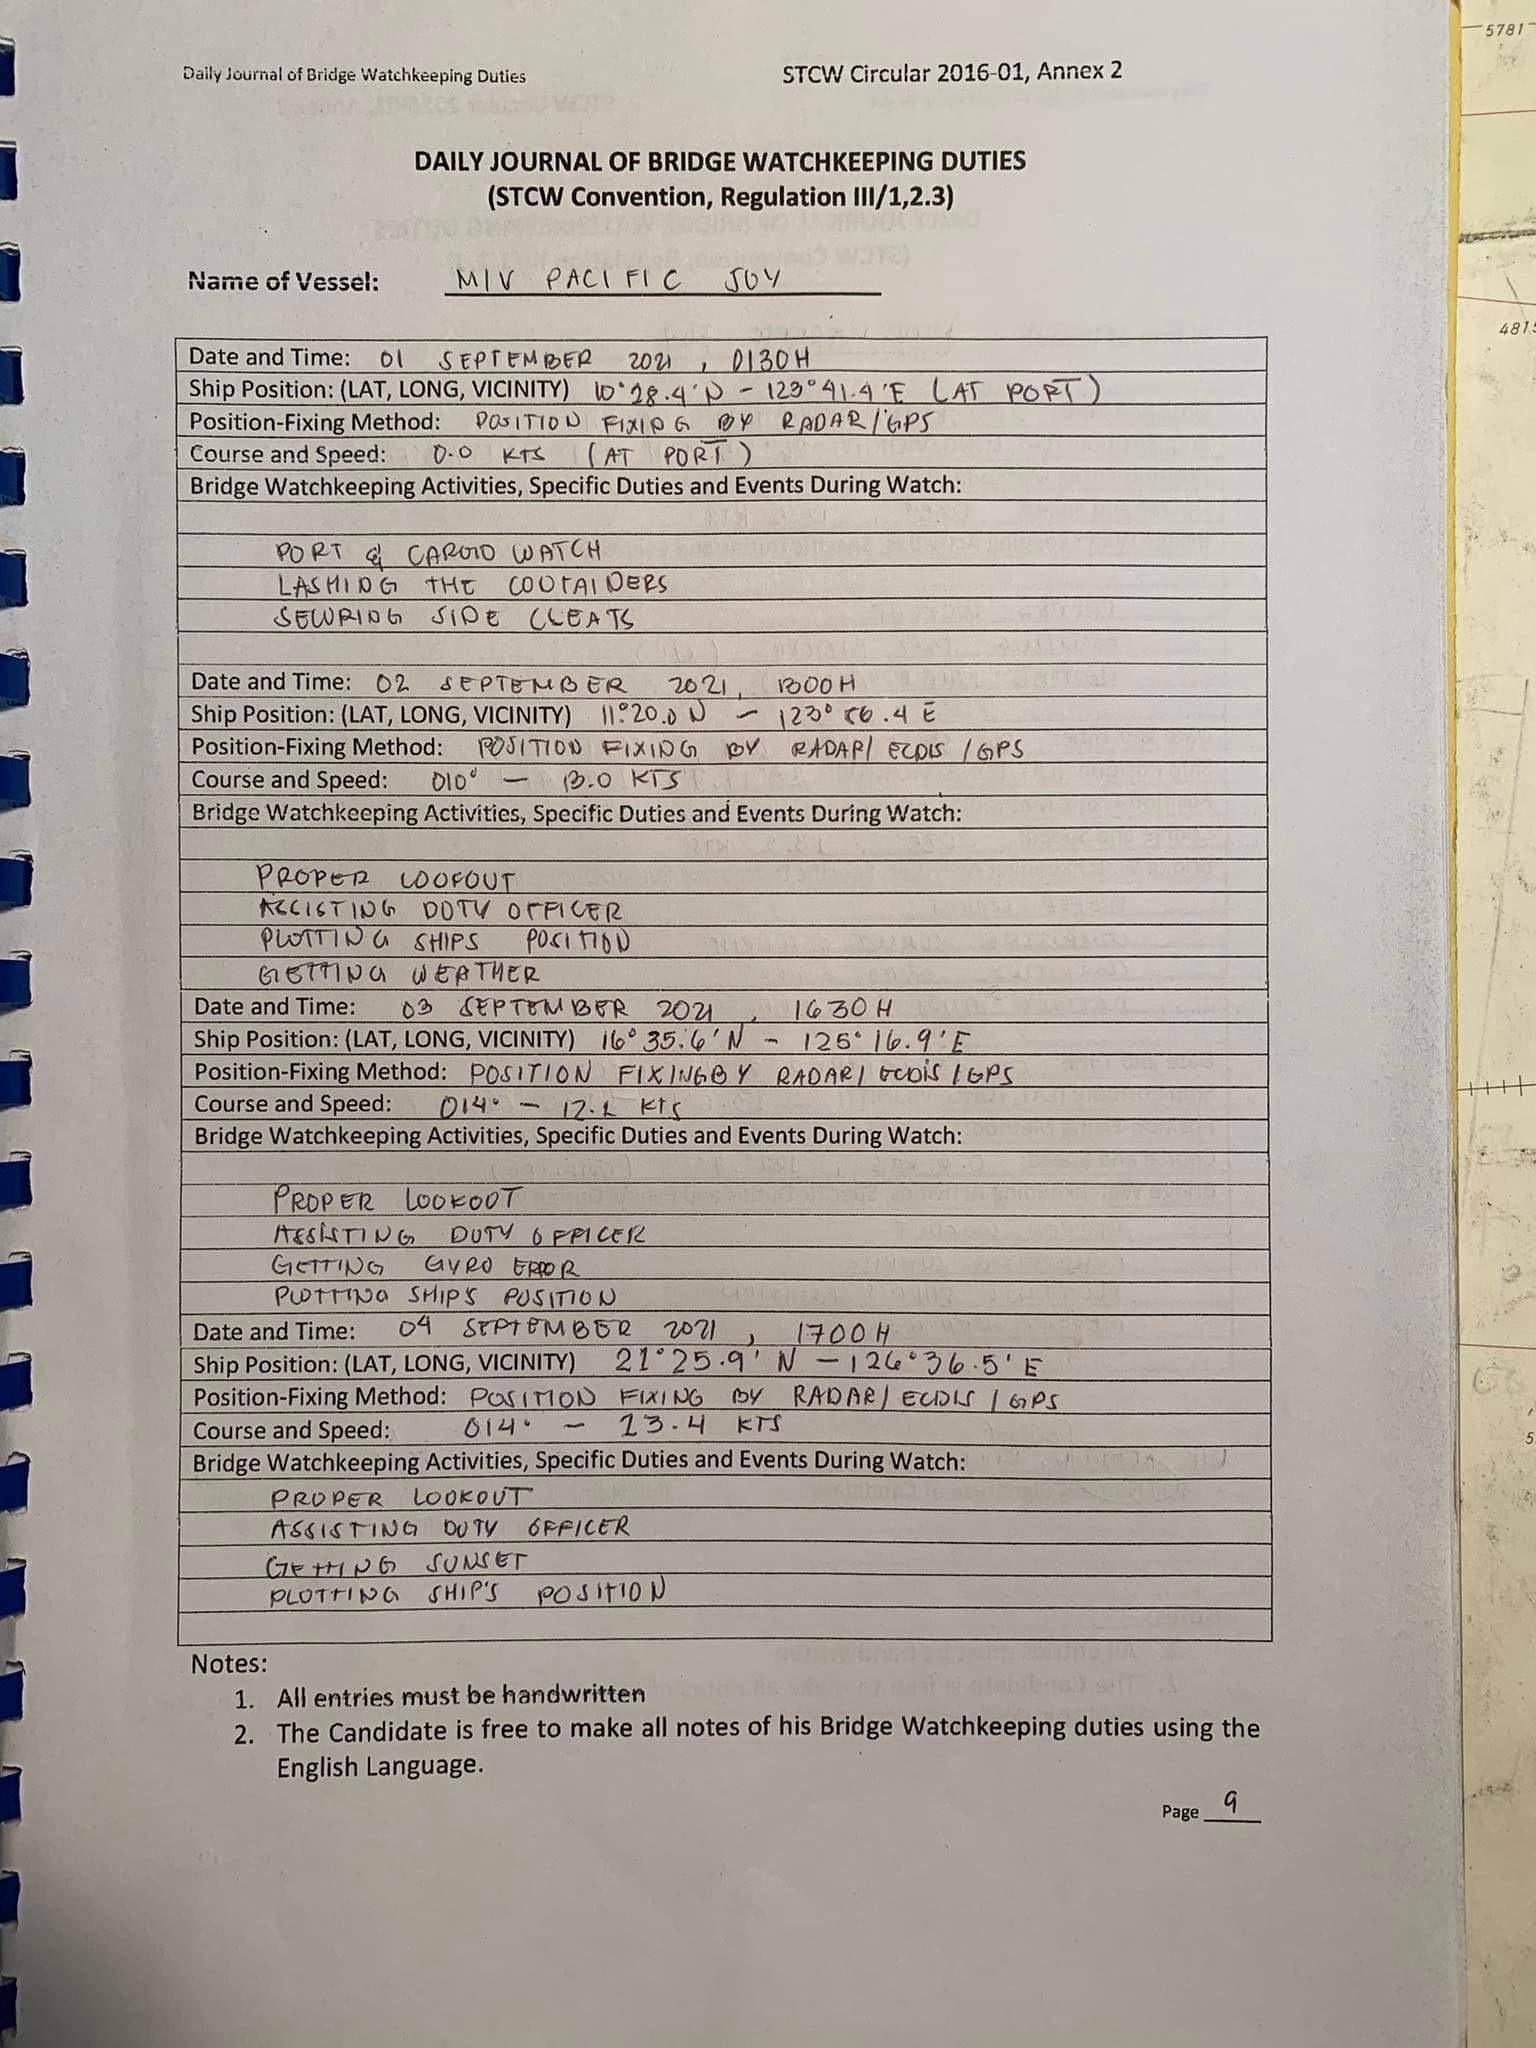 5781
Daily Journal of Bridge Watchkeeping Duties STCW Circular 2016-01, Annex 2
DAILY JOURNAL OF BRIDGE WATCHKEEPING DUTIES
(STCW Convention, Regulation III/1,2.3)
Name of Vessel: M/V PACIFIC JOY
4815
Date and Time: 01 SEPTEMBER 2021, 0130H
Ship Position: (LAT, LONG, VICINITY) 10°28.4'N - 123°41.4'E (AT PORT)
Position-Fixing Method: POSITION FIXING BY RADAR/GPS
Course and Speed: 0.0 KTS (AT PORT)
Bridge Watchkeeping Activities, Specific Duties and Events During Watch:
PORT & CARGO WATCH
LASHING THE CONTAINERS
SECURING SIDE CLEATS
Date and Time: 02 SEPTEMBER 2021, 1300H
Ship Position: (LAT, LONG, VICINITY) 11°20.0 N - 123° 56.4 E
Position-Fixing Method: POSITION FIXING BY RADAR/ ECDIS /GPS
Course and Speed: 010° - 13.0 KTS
Bridge Watchkeeping Activities, Specific Duties and Events During Watch:
PROPER LOOKOUT
ASSISTING DUTY OFFICER
PLOTTING SHIPS POSITION
GETTING WEATHER
Date and Time: 03 SEPTEMBER 2021, 1630H
Ship Position: (LAT, LONG, VICINITY) 16° 35.6'N - 125° 16.9'E
Position-Fixing Method: POSITION FIXING BY RADAR/ ECDIS /GPS
Course and Speed: 014° - KTS
Bridge Watchkeeping Activities, Specific Duties and Events During Watch:
PROPER LOOKOUT
ASSISTING DUTY OFFICER
GETTING GYRO ERROR
PLOTTING SHIPS POSITION
Date and Time: 04 SEPTEMBER 2021, 1700H
Ship Position: (LAT, LONG, VICINITY) 21°25.9' N - 126°36.5' E
Position-Fixing Method: POSITION FIXING BY RADAR/ ECDIS / GPS
Course and Speed: 014° - 13.4 KTS
Bridge Watchkeeping Activities, Specific Duties and Events During Watch:
PROPER LOOKOUT
ASSISTING DUTY OFFICER
GETTING SUNSET
PLOTTING SHIP'S POSITION
Notes:
1. All entries must be handwritten
2. The Candidate is free to make all notes of his Bridge Watchkeeping duties using the
English Language.
Page 9